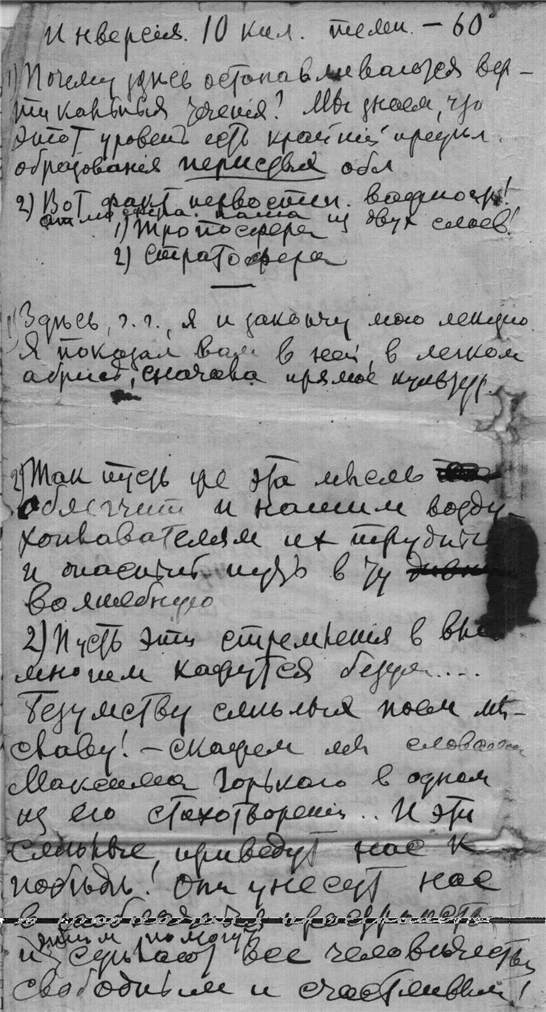 Инверсія. 10 кил. темп. – 60°
1) Почему здѣсь останавливаются вер-
тикальныя теченія? Мы знаем, что
этот уровень есть крайній предѣл
образованія перистыя обл
2) Вот факт первостеп. важност!
атмосфера наша из двух слоев!
1) Тропосфера
2) Стратосфера
1) Здѣсь, г.г., я и закончу мою лекцію
Я показал вам в ней, в легком
абрисѣ, сначала прямое
2) Так пусть же эта мысль
облегчит и нашим возду-
хоплавателям их трудный
и опасный путь в
волшебную
2) Пусть эти стремленія в
многим кажутся безум....
Безумству смѣлых поем мы
славу! – скажем мы словами
Максима Горькаго в одном
из его стихотвореній.. И эти
смѣлые, приведут нас к
побѣдѣ! Они унесут нас
в
этим помогут
и сдѣлают все человѣчество
свободным и счастливым!